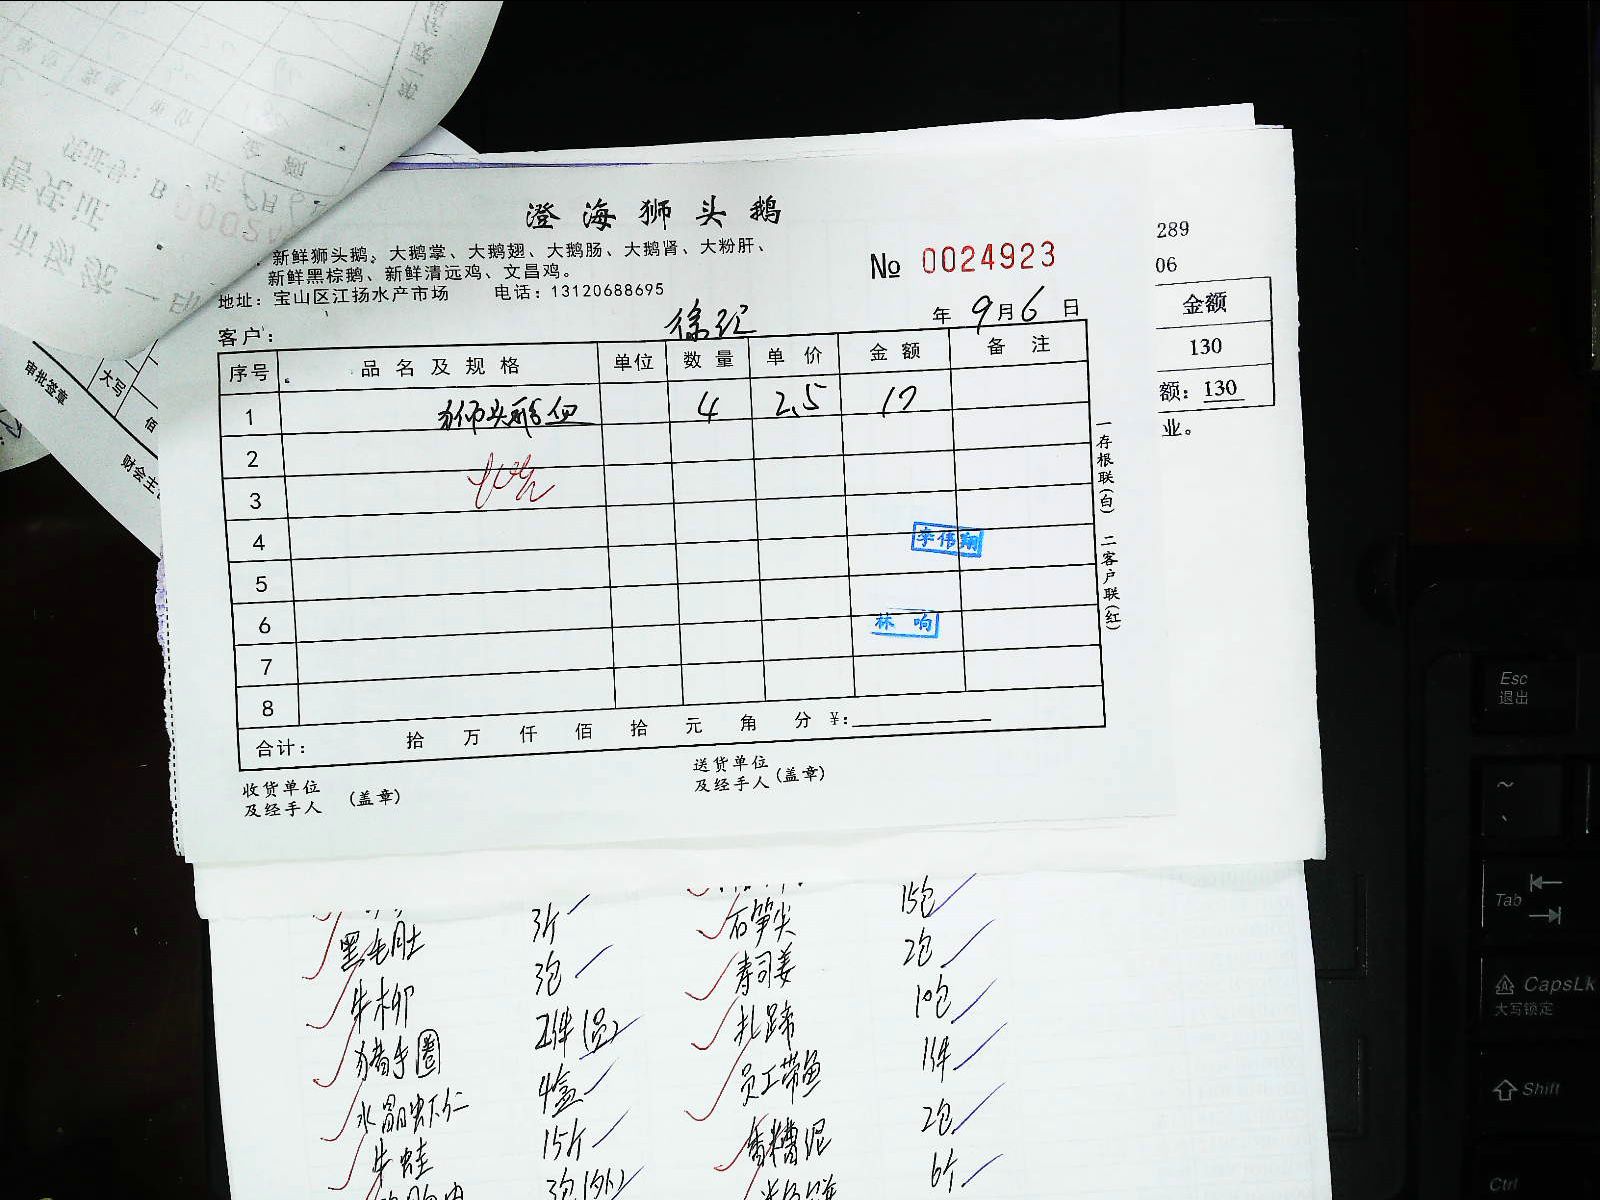 澄海狮头鹅
新鲜狮头鹅。大鹅掌、大鹅翅、大鹅肠、大鹅肾、大粉肝、
新鲜黑棕鹅、新鲜清远鸡、文昌鸡。
地址：宝山区江扬水产市场 电话：13120688695
№ 0024923
客户：
年 9月6日
序号 品名及规格 单位 数量 单价 金额 备注
1 狮头鹅 4 2.5
2
3
4
李伟翔
5
6
林响
7
8
合计： 拾 万 仟 佰 拾 元 角 分 ¥：
收货单位
及经手人 (盖章)
送货单位
及经手人 (盖章)
一存根联(白) 二客户联(红)
289
06
金额
130
额：130
业。
大写
佰
审批签章
财会主
黑毛肚 3斤
牛柳 3包
猪手圈 2件(员)
水晶虾仁 4盒
牛蛙 15斤
石笋尖 15包
寿司姜 2包
扎蹄 10包
员工带鱼 1件
香糟泥 2包
6个
Esc
退出
Tab
CapsLk
大写锁定
Shift
Ctrl